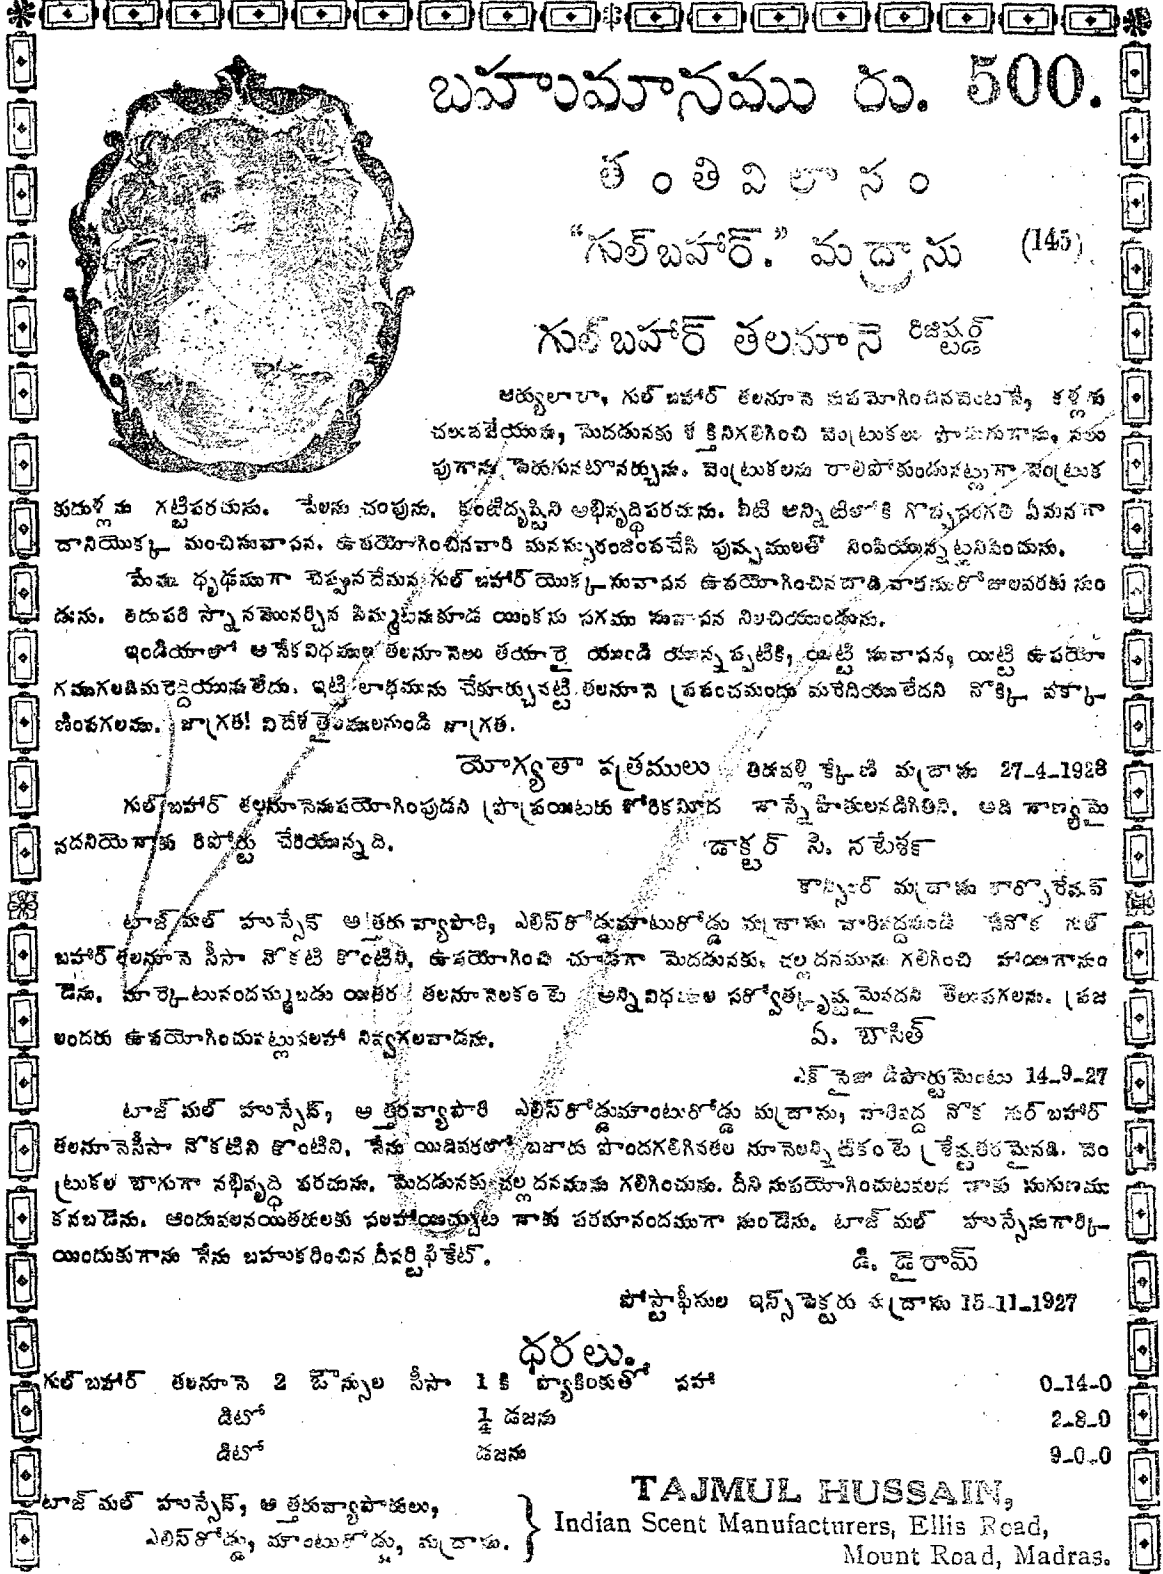 బహుమానము రు. 500.
తంతివిలాసం
"గుల్‌బహార్." మద్రాసు (145)
గుల్‌బహార్ తలనూనె రిజిష్టర్డ్
ఆర్యులారా, గుల్ బహార్ తలనూనె నుపయోగించినవెంటనే, కళ్లకు
చలువచేయును, మెదడునకు శక్తినిగలిగించి వెంట్రుకలు పొడుగుగాను, నలు
పుగాను పెరుగునటొనర్చును. వెంట్రుకలను రాలిపోకుండునట్లుగా వెంట్రుక
కుదుళ్లను గట్టిపరచును. పేలను చంపును. కంటిదృష్టిని అభివృద్ధిపరచును. వీటి అన్నిటిలోకి గొప్పసంగతి ఏమనగా
దానియొక్క మంచిసువాసన. ఉపయోగించినవారి మనస్సురంజింపచేసి పుష్పములతో నింపియున్నట్లనిపించును.
మేము ధృఢముగా చెప్పునదేమన గుల్ బహార్‌యొక్క సువాసన ఉపయోగించినదాది వారమురోజులవరకు నుం
డును. తదుపరి స్నానమొనర్చిన పిమ్మటనుకూడ యింకను సగము సువాసన నిలచియుండును.
ఇండియాలో అనేకవిధముల తలనూనెలు తయారై యుండి యున్నప్పటికి, యిట్టి సువాసన, యిట్టి ఉపయో
గముగలదిమరేదియునులేదు. ఇట్టి లాభమును చేకూర్చునట్టి తలనూనె ప్రపంచమందు మరేదియులేదని నొక్కి వక్కా
ణింపగలము. జాగ్రత! విదేశ తైలములనుండి జాగ్రత.
యోగ్యతా పత్రములు తిరువళ్లిక్కేణి మద్రాసు 27-4-1928
గుల్ బహార్ తలనూనెనుపయోగింపుడని ప్రొప్రయిటరు కోరికమీద నాస్నేహితులనడిగితిని. అది నాణ్యమై
నదనియెనాకు రిపోర్టు చేరియున్నది. డాక్టర్ సి. నటేశన్
కౌన్సిలర్ మద్రాసు కార్పొరేషన్
టాజ్ మల్ హుస్సేన్ అత్తరు వ్యాపారి, ఎలిస్‌రోడ్డుమౌంటురోడ్డు మద్రాసు వారివద్దనుండి నేనొక గుల్
బహార్ తలనూనె సీసా నొకటి కొంటిని, ఉపయోగించి చూడగా మెదడునకు, చల్లదనమును గలిగించి హాయిగానుం
డెను. మార్కెటునందమ్ముబడు యితర తలనూనెలకంటె అన్నివిధముల సర్వోత్కృష్టమైనదని తెలుపగలను. ప్రజ
లందరు ఉపయోగించునట్లుసలహా నివ్వగలవాడను. ఏ. బాసిత్
ఎక్సైజు డిపార్టుమెంటు 14-9-27
టాజ్ మల్ హుస్సేన్, అత్తరువ్యాపారి ఎలిస్‌రోడ్డుమౌంటురోడ్డు మద్రాసు, వారివద్ద నొక గుల్‌బహార్
తలనూనెసీసా నొకటిని కొంటిని. నేను యిదివరలో బజారు పొందగలిగినతల నూనెలన్నిటికంటె శ్రేష్టతరమైనది. వెం
ట్రుకల బాగుగా నభివృద్ధి పరచును. మెదడునకు చల్లదనమును గలిగించును. దీని నుపయోగించుటవలన నాకు సుగుణము
కనబడెను. అందువలనయితరులకు సలహాయిచ్చుట నాకు పరమానందముగా నుండెను. టాజ్ మల్ హుస్సేనుగార్కి
యిందుకుగాను నేను బహుకరించిన దీసర్టిఫికేట్. డి. జైరామ్
పోస్టాఫీసుల ఇన్స్‌పెక్టరు మద్రాసు 15-11-1927
ధరలు.
గుల్ బహార్ తలనూనె 2 ఔన్సుల సీసా 1 కి ప్యాకింకుతో సహా 0-14-0
డిటో ¼ డజను 2-8-0
డిటో డజను 9-0-0
టాజ్ మల్ హుస్సేన్, అత్తరువ్యాపారులు,
ఎలిస్‌రోడ్డు, మౌంటురోడ్డు, మద్రాసు.
TAJMUL HUSSAIN,
Indian Scent Manufacturers, Ellis Road,
Mount Road, Madras.